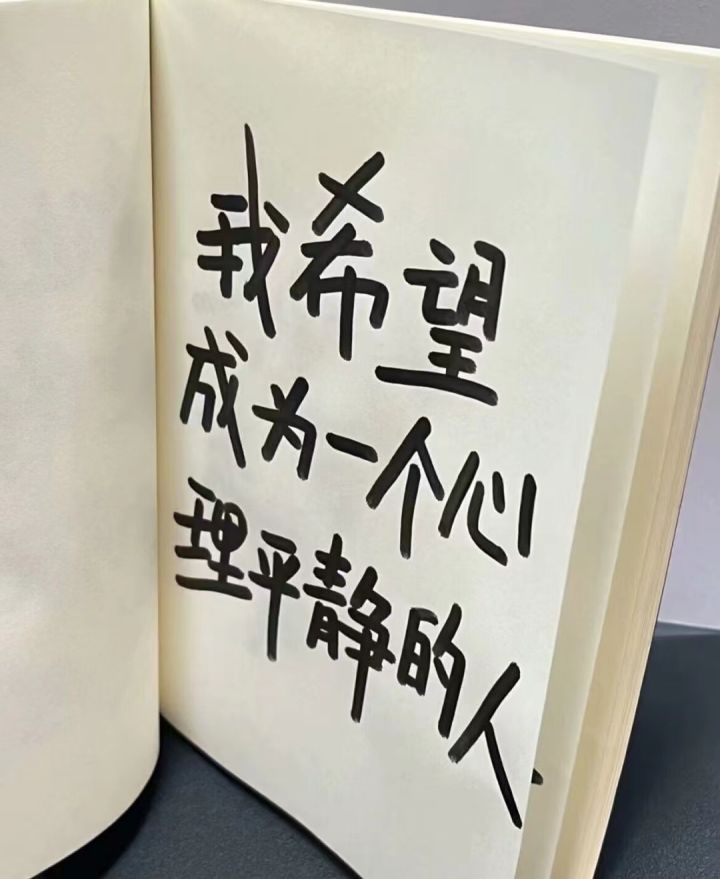 我希望
成为一个心
理平静的人